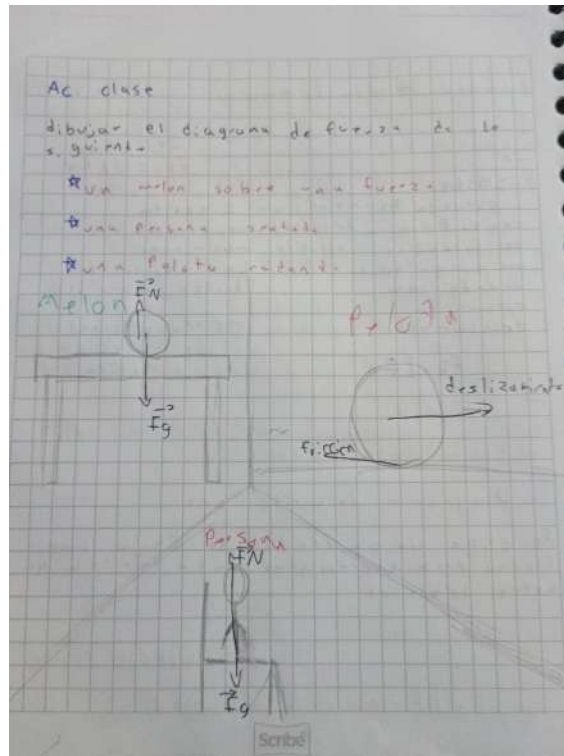 Ac. clase
dibujar el diagrama de fuerza de lo
siguiente
un melon sobre una fuerza
una persona sentada
una Pelota rodando
Melon
FN
Pelota
deslizamiento
Fg
friccion
Persona
FN
Fg
Scribe